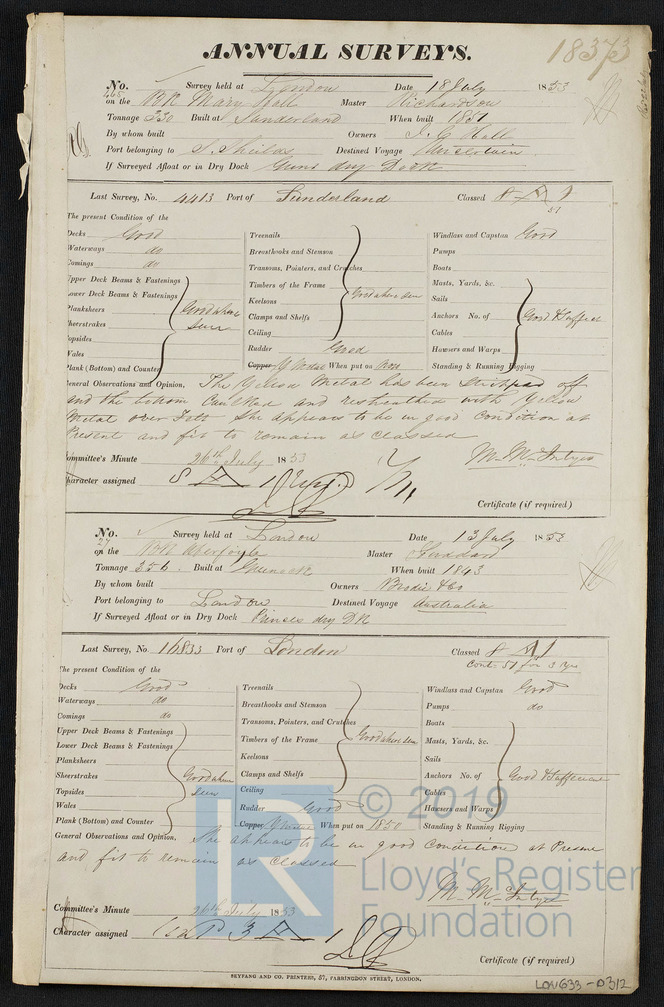 ANNUAL SURVEYS.
18373
No. Survey held at London Date 18 July 1853
on the BK Mary Hall Master Richardson
Tonnage 330 Built at Sunderland When built 1851
By whom built Owners J. C. Hall
Port belonging to S. Shields Destined Voyage Uncertain
If Surveyed Afloat or in Dry Dock dry Dock
Last Survey, No. 4413 Port of Sunderland Classed 8 A 1
51
The present Condition of the
Decks Good
Waterways do
Comings do
Upper Deck Beams & Fastenings
Lower Deck Beams & Fastenings
Planksheers
Sheerstrakes
Topsides
Wales
Plank (Bottom) and Counter
Good where
seen
Treenails
Breasthooks and Stemson
Transoms, Pointers, and Crutches
Timbers of the Frame
Keelsons
Clamps and Shelfs
Ceiling
Good where seen
Rudder Good
Copper Y Metal When put on Now
Windlass and Capstan Good
Pumps
Boats
Masts, Yards, &c.
Sails
Anchors No. of
Cables
Hawsers and Warps
Standing & Running Rigging
Good & Sufficient
General Observations and Opinion, The Yellow Metal has been stripped off
and the bottom Caulked and resheathed with Yellow
Metal over Felt She appears to be in good Condition at
Present and fit to remain as classed
Committee's Minute 26th July 1853
Character assigned 8 A 1
Certificate (if required)
No. Survey held at London Date 13 July 1853
27
on the BK Aberfoyle Master
Tonnage 356. Built at Greenock When built 1843
By whom built Owners Brodie & Co
Port belonging to London Destined Voyage Australia
If Surveyed Afloat or in Dry Dock Princes dry Dk
Last Survey, No. 16833 Port of London Classed A 1
Cont. 51 for 3 Yrs
The present Condition of the
Decks Good
Waterways do
Comings do
Upper Deck Beams & Fastenings
Lower Deck Beams & Fastenings
Planksheers
Sheerstrakes
Topsides
Wales
Plank (Bottom) and Counter
Good where
seen
Treenails
Breasthooks and Stemson
Transoms, Pointers, and Crutches
Timbers of the Frame
Keelsons
Clamps and Shelfs
Ceiling
Good where seen
Rudder Good
Copper Y Metal When put on 1850
Windlass and Capstan Good
Pumps do
Boats
Masts, Yards, &c.
Sails
Anchors No. of
Cables
Hawsers and Warps
Standing & Running Rigging
Good & Sufficient
General Observations and Opinion, She appears to be in good Condition at Present
and fit to remain as classed
Committee's Minute 26th July 1853
Character assigned 3 A 1
Certificate (if required)
SKYFANG AND CO. PRINTERS, 57, FARRINGDON STREET, LONDON.
LR
© 2019
Lloyd's Register
Foundation
LON633-0312